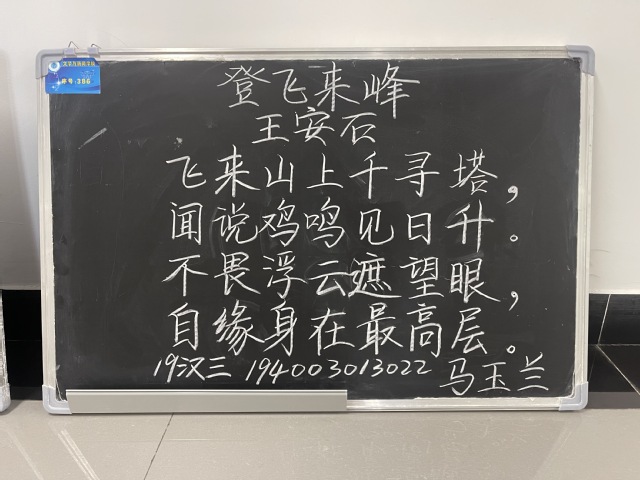 登飞来峰
王安石
飞来山上千寻塔，
闻说鸡鸣见日升。
不畏浮云遮望眼，
自缘身在最高层。
19汉三 194003013022 马玉兰
序号：286